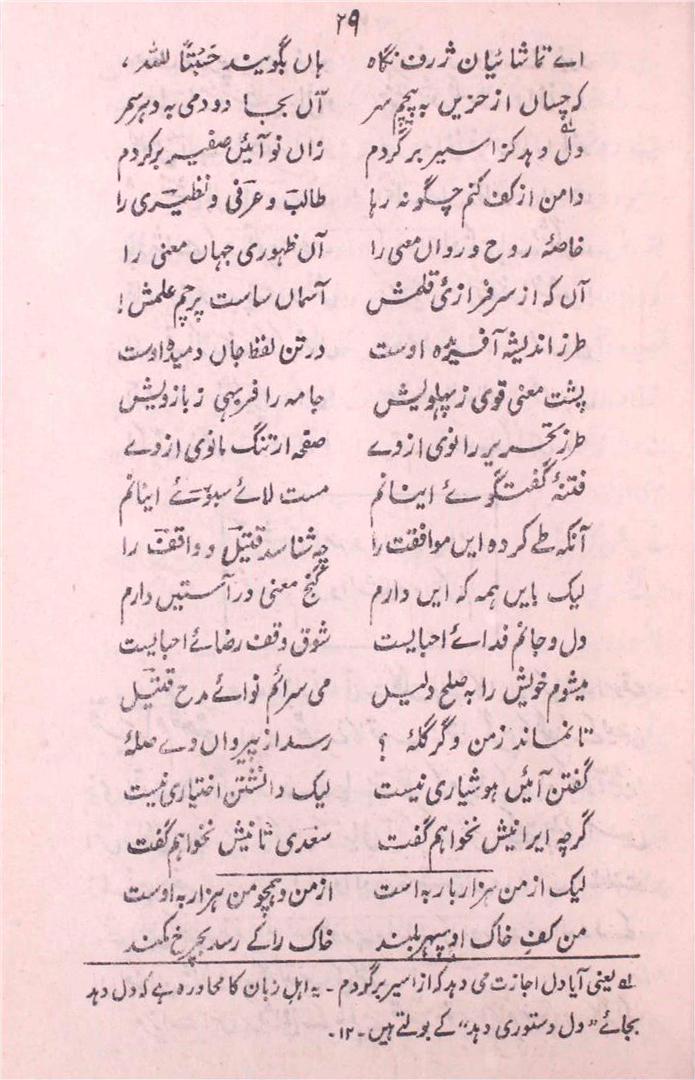 ۲۹
اے تماشائیان ژرف نگاہ ہاں بگویند حَسْبُنَا للہ،
کہ چساں از حزیں بہ پیچم سر آں بجا دو دمی بہ دہر سمر
دل دہد کز اسیر برگردم زاں نو آئیں صفیر برگردم
دامن از کف کنم چگونہ رہا طالب و عرفی و نظیری را
خاصۂ روح و روان معنی را آں ظہوری جہان معنی را
آں کہ از سرفرازیٔ قلمش آسماں ساست پرچم علمش!
طرز اندیشہ آفریدہ اوست در تن لفظ جاں دمیدہ اوست
پشت معنی قوی ز پہلویش خامہ را فربہی ز بازویش
طرز تحریر را نوی ازوے صفحہ ارتنگ مانوی ازوے
فتنۂ گفتگوئے اینانم مست لائے سبوئے اینانم
آنکہ طے کردہ ایں موافقت را چہ شناسد قتیل و واقف را
لیک بایں ہمہ کہ ایں دارم گنج معنی در آستیں دارم
دل و جانم فدائے احبابست شوق وقف رضائے احبابست
میشوم خویش را بہ صلح دلیل می سرائم نوائے مدح قتیل
تا نماند زمن دگر گلۂ ؟ رسد از پیروان وے صلۂ
گفتن آئیں ہوشیاری نیست لیک دانستن اختیاری نیست
گرچہ ایرانیش نخواہم گفت سعدی ثانیش نخواہم گفت
لیک از من ہزار بار بہ است از من و ہمچو من ہزار بہ اوست
من کف خاک او سپہر بلند خاک را کے رسد بچرخ کمند
لہ یعنی آیا دل اجازت می دہد کہ از اسیر برگردم ۔ یہ اہل زبان کا محاورہ ہے کہ دل دہد
بجائے “دل دستوری دہد” کے بولتے ہیں ۔ ۱۲ ۔